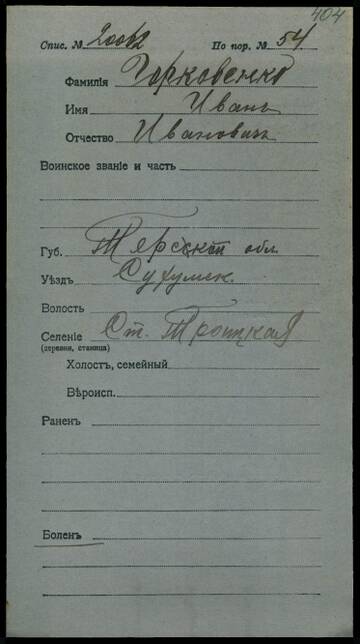 404
Спис. № 20062 По пор. № 54
Фамилія Горковенко
Имя Иванъ
Отчество Ивановичъ
Воинское званіе и часть
Губ. Терской обл.
Уѣздъ Сухумск.
Волость
Селеніе Ст. Троицкая
(деревня, станица)
Холостъ, семейный
Вѣроисп.
Раненъ
Боленъ